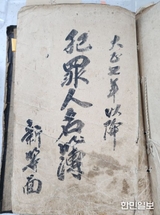 大正七年以降
犯罪人名簿
新岩面
한민일보